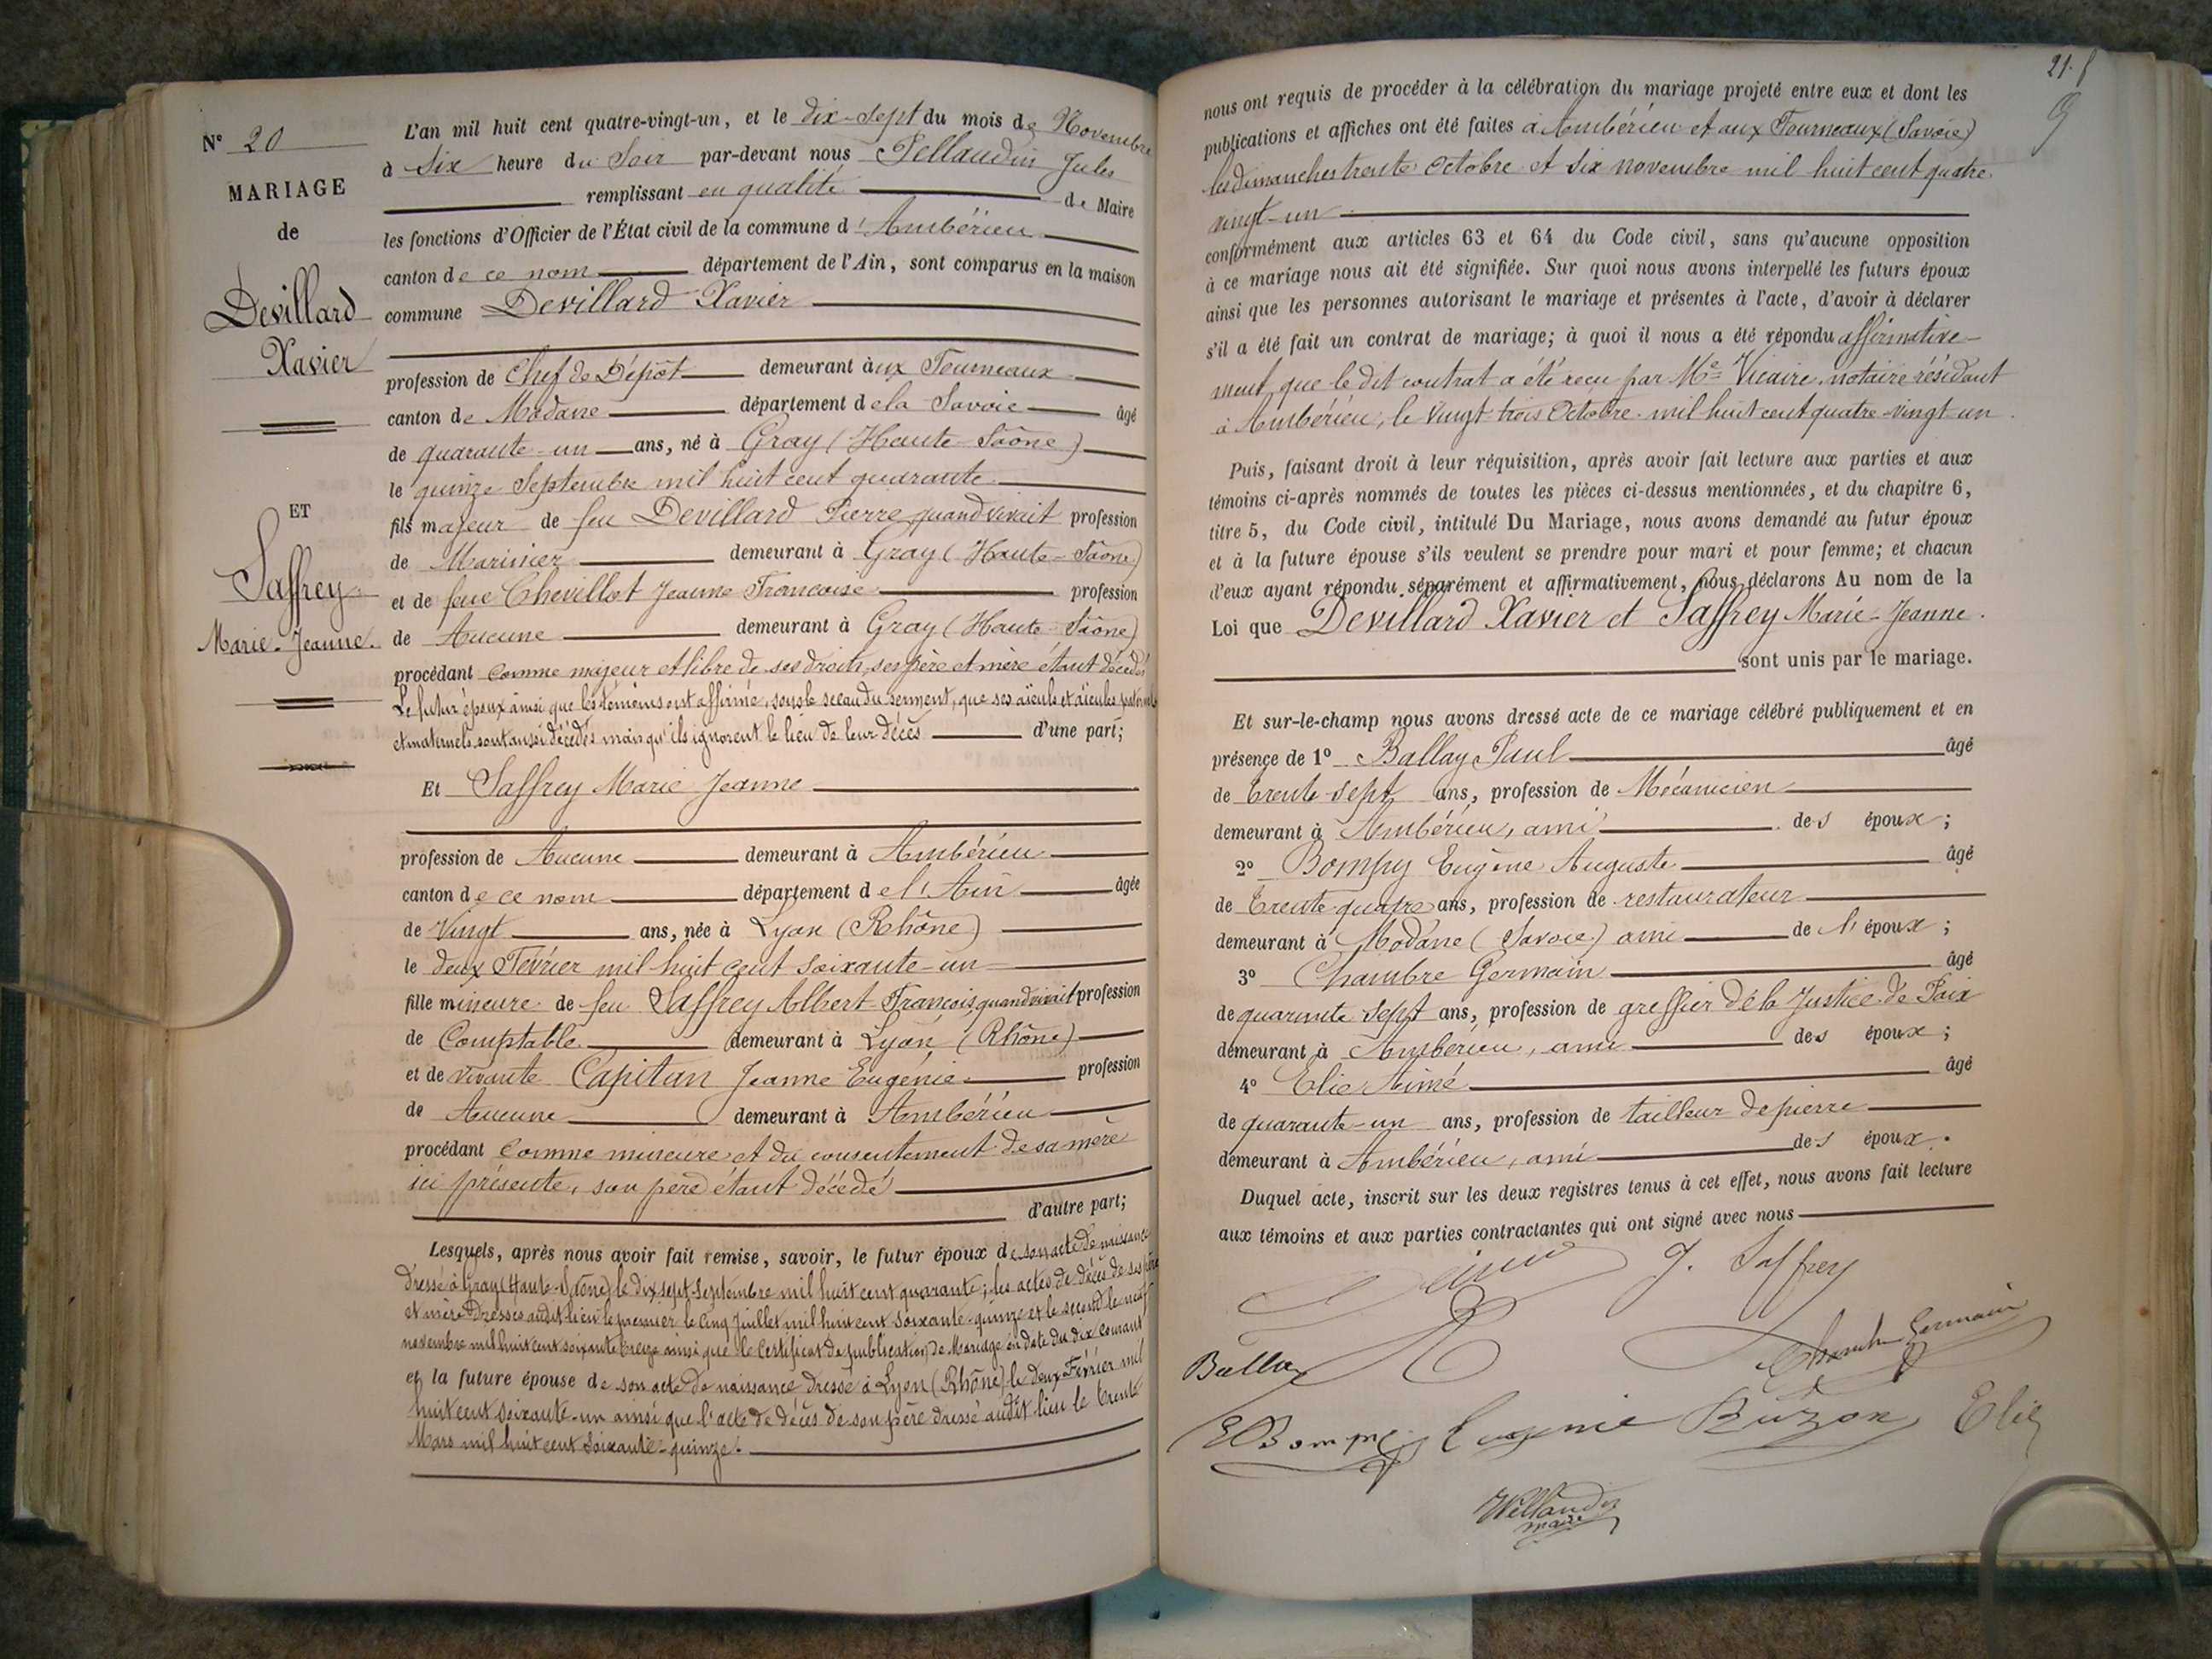 N° 20
MARIAGE
de
Devillard
Xavier
ET
Saffrey
Marie-Jeanne.
L'an mil huit cent quatre-vingt-un, et le dix-sept du mois de Novembre
à six heure du Soir par-devant nous Pellaudin Jules
remplissant en qualité de Maire
les fonctions d'Officier de l'État civil de la commune d'Ambérieu
canton de ce nom département de l'Ain, sont comparus en la maison
commune Devillard Xavier
profession de Chef de Dépôt demeurant aux Fourneaux
canton de Modane département de la Savoie âgé
de quarante-un ans, né à Gray (Haute-Saône)
le quinze Septembre mil huit cent quarante
fils majeur de feu Devillard Pierre quand vivait profession
de Marinier demeurant à Gray (Haute-Saône)
et de feue Chevillot Jeanne Francoise profession
de Aucune demeurant à Gray (Haute-Saône)
procédant comme majeur et libre de ses droits, ses père et mère étant décédés
Le futur époux ainsi que les témoins ont affirmé, sous le sceau du serment, que ses aïeuls et aïeules paternels
et maternels sont aussi décédés mais qu'ils ignorent le lieu de leur décès d'une part;
Et Saffrey Marie Jeanne
profession de Aucune demeurant à Ambérieu
canton de ce nom département de l'Ain âgée
de Vingt ans, née à Lyon (Rhône)
le deux Février mil huit cent soixante-un
fille mineure de feu Saffrey Albert-François, quand vivait profession
de Comptable demeurant à Lyon (Rhône)
et de vivante Capitan Jeanne Eugénie profession
de Aucune demeurant à Ambérieu
procédant comme mineure et du consentement de sa mère
ici présente, son père étant décédé
d'autre part;
Lesquels, après nous avoir fait remise, savoir, le futur époux de son acte de naissance
dressé à Gray (Haute-Saône) le dix sept Septembre mil huit cent quarante; les actes de décès de ses père
et mère dressés audit lieu le premier le cinq Juillet mil huit cent soixante-quinze et le second le neuf
novembre mil huit cent soixante treize ainsi que le certificat de publication de Mariage en date du dix courant
et la future épouse de son acte de naissance dressé à Lyon (Rhône) le deux Février mil
huit cent soixante-un ainsi que l'acte de décès de son père dressé audit lieu le trente
Mars mil huit cent soixante-quinze.
21.
nous ont requis de procéder à la célébration du mariage projeté entre eux et dont les
publications et affiches ont été faites à Ambérieu et aux Fourneaux (Savoie)
les dimanches trente Octobre et six novembre mil huit cent quatre
vingt-un
conformément aux articles 63 et 64 du Code civil, sans qu'aucune opposition
à ce mariage nous ait été signifiée. Sur quoi nous avons interpellé les futurs époux
ainsi que les personnes autorisant le mariage et présentes à l'acte, d'avoir à déclarer
s'il a été fait un contrat de mariage; à quoi il nous a été répondu affirmative-
ment, que le dit contrat a été reçu par Me Vicaire, notaire résidant
à Ambérieu, le vingt-trois Octobre mil huit cent quatre-vingt un.
Puis, faisant droit à leur réquisition, après avoir fait lecture aux parties et aux
témoins ci-après nommés de toutes les pièces ci-dessus mentionnées, et du chapitre 6,
titre 5, du Code civil, intitulé Du Mariage, nous avons demandé au futur époux
et à la future épouse s'ils veulent se prendre pour mari et pour femme; et chacun
d'eux ayant répondu séparément et affirmativement, nous déclarons Au nom de la
Loi que Devillard Xavier et Saffrey Marie-Jeanne.
sont unis par le mariage.
Et sur-le-champ nous avons dressé acte de ce mariage célébré publiquement et en
présence de 1° Ballay Paul âgé
de trente sept ans, profession de Mécanicien
demeurant à Ambérieu, ami des époux;
2° Bompy Eugène Auguste âgé
de trente-quatre ans, profession de restaurateur
demeurant à Modane (Savoie) ami de l'époux;
3° Chambre Germain âgé
de quarante sept ans, profession de greffier de la Justice de Paix
demeurant à Ambérieu, ami des époux;
4° Elie Aimé âgé
de quarante-un ans, profession de tailleur de pierre
demeurant à Ambérieu, ami des époux.
Duquel acte, inscrit sur les deux registres tenus à cet effet, nous avons fait lecture
aux témoins et aux parties contractantes qui ont signé avec nous
J. Saffrey
Ballay
Chambre Germain
Eugenie Buzon Elie
Pellaudin
maire